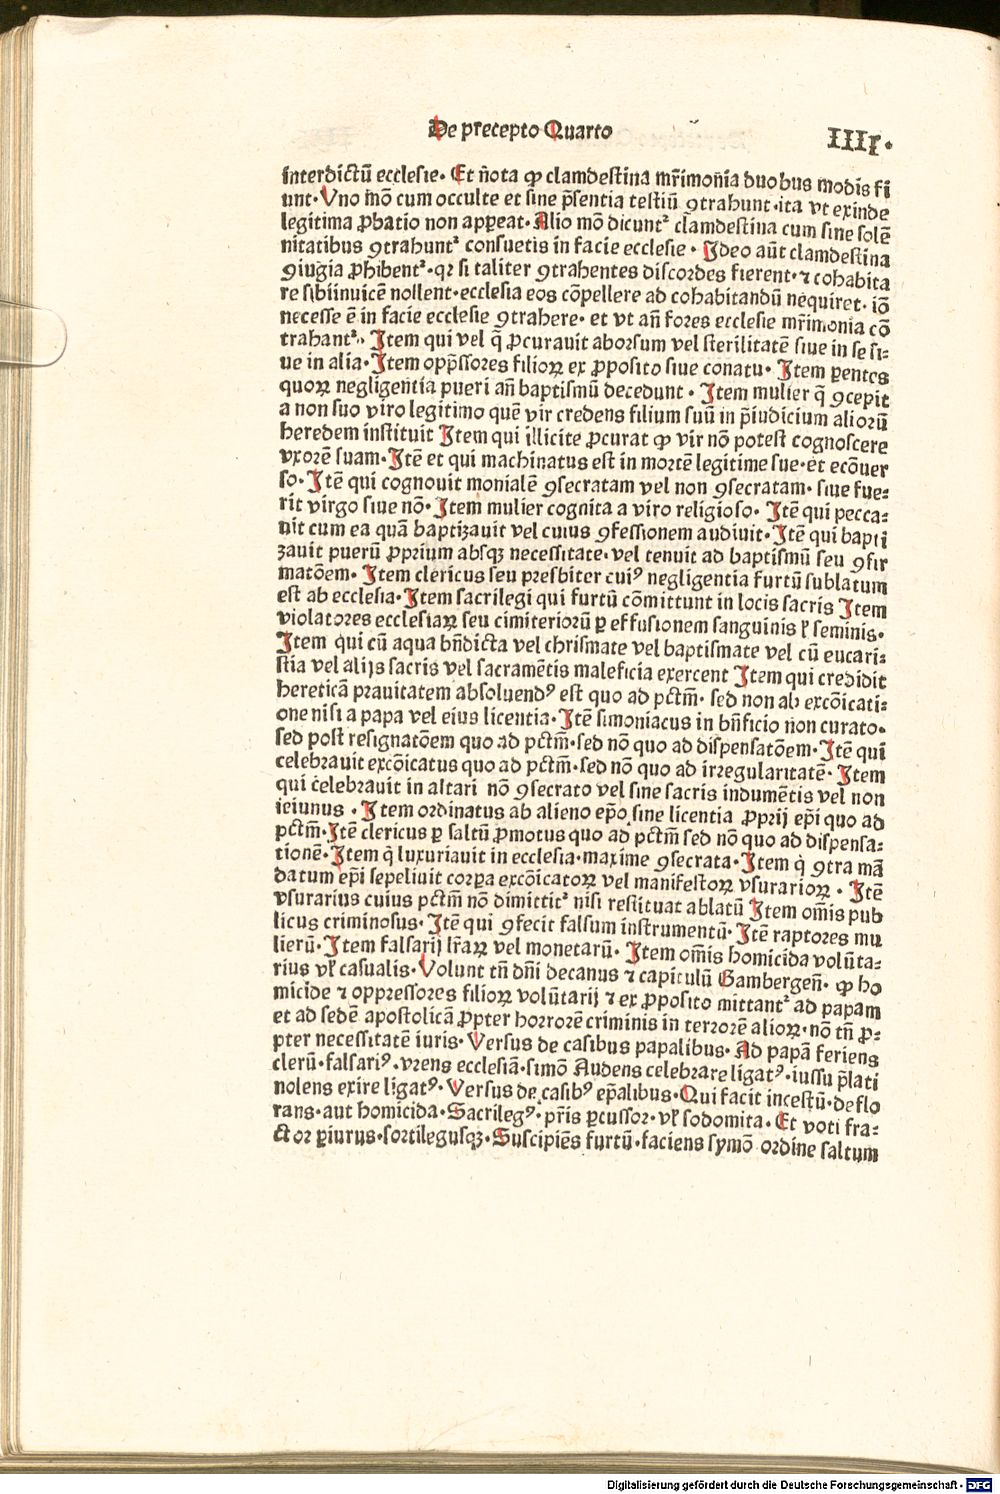 De precepto Quarto
IIII.
interdictū ecclesie. Et n̄ota ꝙ clamdestina mr̄imonia duobus modis fi
unt. Uno mō cum occulte et sine p̄sentia testiū ꝯtrahunt. ita vt exinde
legitima ꝓbatio non appeat. Alio mō dicunt᷑ clamdestina cum sine solē
nitatibus ꝯtrahunt᷑ consuetis in facie ecclesie. Ideo aūt clamdestina
ꝯiugia ꝓhibent᷑. qꝛ si taliter ꝯtrahentes discordes fierent. ⁊ cohabita
re sibiinuicē nollent. ecclesia eos cōpellere ad cohabitandū nequiret. iō
necesse ē in facie ecclesie ꝯtrahere. et vt an̄ fores ecclesie mr̄imonia cō
trahant᷑. Item qui vel q̄ ꝓcurauit aborsum vel sterilitatē siue in se si-
ue in alia. Item opp̄ssores filioꝝ ex ꝓposito siue conatu. Item ꝑentes
quoꝝ negligentia pueri an̄ baptismū decedunt. Item mulier q̄ ꝯcepit
a non suo viro legitimo quē vir credens filium suū in p̄iudicium alioꝛū
heredem instituit Item qui illicite ꝓcurat ꝙ vir nō potest cognoscere
vxorē suam. Itē et qui machinatus est in mortē legitime sue. et ecōuer
so. Itē qui cognouit monialē ꝯsecratam vel non ꝯsecratam. siue fue-
rit virgo siue nō. Item mulier cognita a viro religioso. Itē qui pecca-
uit cum ea quā baptizauit vel cuius ꝯfessionem audiuit. Itē qui bapti
zauit puerū ꝓprium absqꝫ necessitate. vel tenuit ad baptismū seu ꝯfir
matōem. Item clericus seu presbiter cuiꝰ negligentia furtū sublatum
est ab ecclesia. Item sacrilegi qui furtū cōmittunt in locis sacris Item
violatores ecclesiaꝝ seu cimiterioꝛū ꝑ effusionem sanguinis ꝉ seminis.
Item qui cū aqua bn̄dicta vel chrismate vel baptismate vel cū eucari-
stia vel alijs sacris vel sacramētis maleficia exercent Item qui credidit
hereticā prauitatem absoluendꝰ est quo ad pctm̄. sed non ab excōicati-
one nisi a papa vel eius licentia. Itē simoniacus in bn̄ficio non curato.
sed post resignatōem quo ad pctm̄. sed nō quo ad dispensatōem. Itē qui
celebrauit excōicatus quo ad pctm̄. sed nō quo ad irregularitatē. Item
qui celebrauit in altari nō ꝯsecrato vel sine sacris indumētis vel non
ieiunus. Item ordinatus ab alieno ep̄o sine licentia ꝓprij ep̄i quo ad
pctm̄. Itē clericus ꝑ saltū ꝓmotus quo ad pctm̄ sed nō quo ad dispensa-
tionē. Item q̇ luxuriauit in ecclesia. maxime ꝯsecrata. Item q̇ ꝯtra mā
datum ep̄i sepeliuit corꝑa excōicatoꝝ vel manifestoꝝ vsurarioꝝ. Itē
vsurarius cuius pctm̄ nō dimittit᷑ nisi restituat ablatū Item om̄is pub
licus criminosus. Itē qui ꝯfecit falsum instrumentū. Itē raptores mu
lierū. Item falsarij lr̄aꝝ vel monetarū. Item om̄is homicida volūta-
rius vꝉ casualis. Volunt tn̄ dn̄i decanus ⁊ capitulū Bambergen̄. ꝙ ho
micide ⁊ oppressores filioꝝ volūtarij ⁊ ex ꝓposito mittant᷑ ad papam
et ad sedē apostolicā ꝓpter horrorē criminis in terrorē alioꝝ. nō tn̄ ꝓ-
pter necessitatē iuris. Versus de casibus papalibus. Ad papā feriens
clerū. falsariꝰ. vrens ecclesiā. simō Audens celebrare ligatꝰ. iussu p̄lati
nolens exire ligatꝰ. Versus de casibꝰ ep̄alibus. Qui facit incestū. deflo
rans. aut homicida. Sacrilegꝰ. pr̄is ꝑcussor. vꝉ sodomita. Et voti fra-
ctor ꝑiurus. sortilegusqꝫ. Suscipiēs furtū. faciens symō ordine saltum
Digitalisierung gefördert durch die Deutsche Forschungsgemeinschaft - DFG